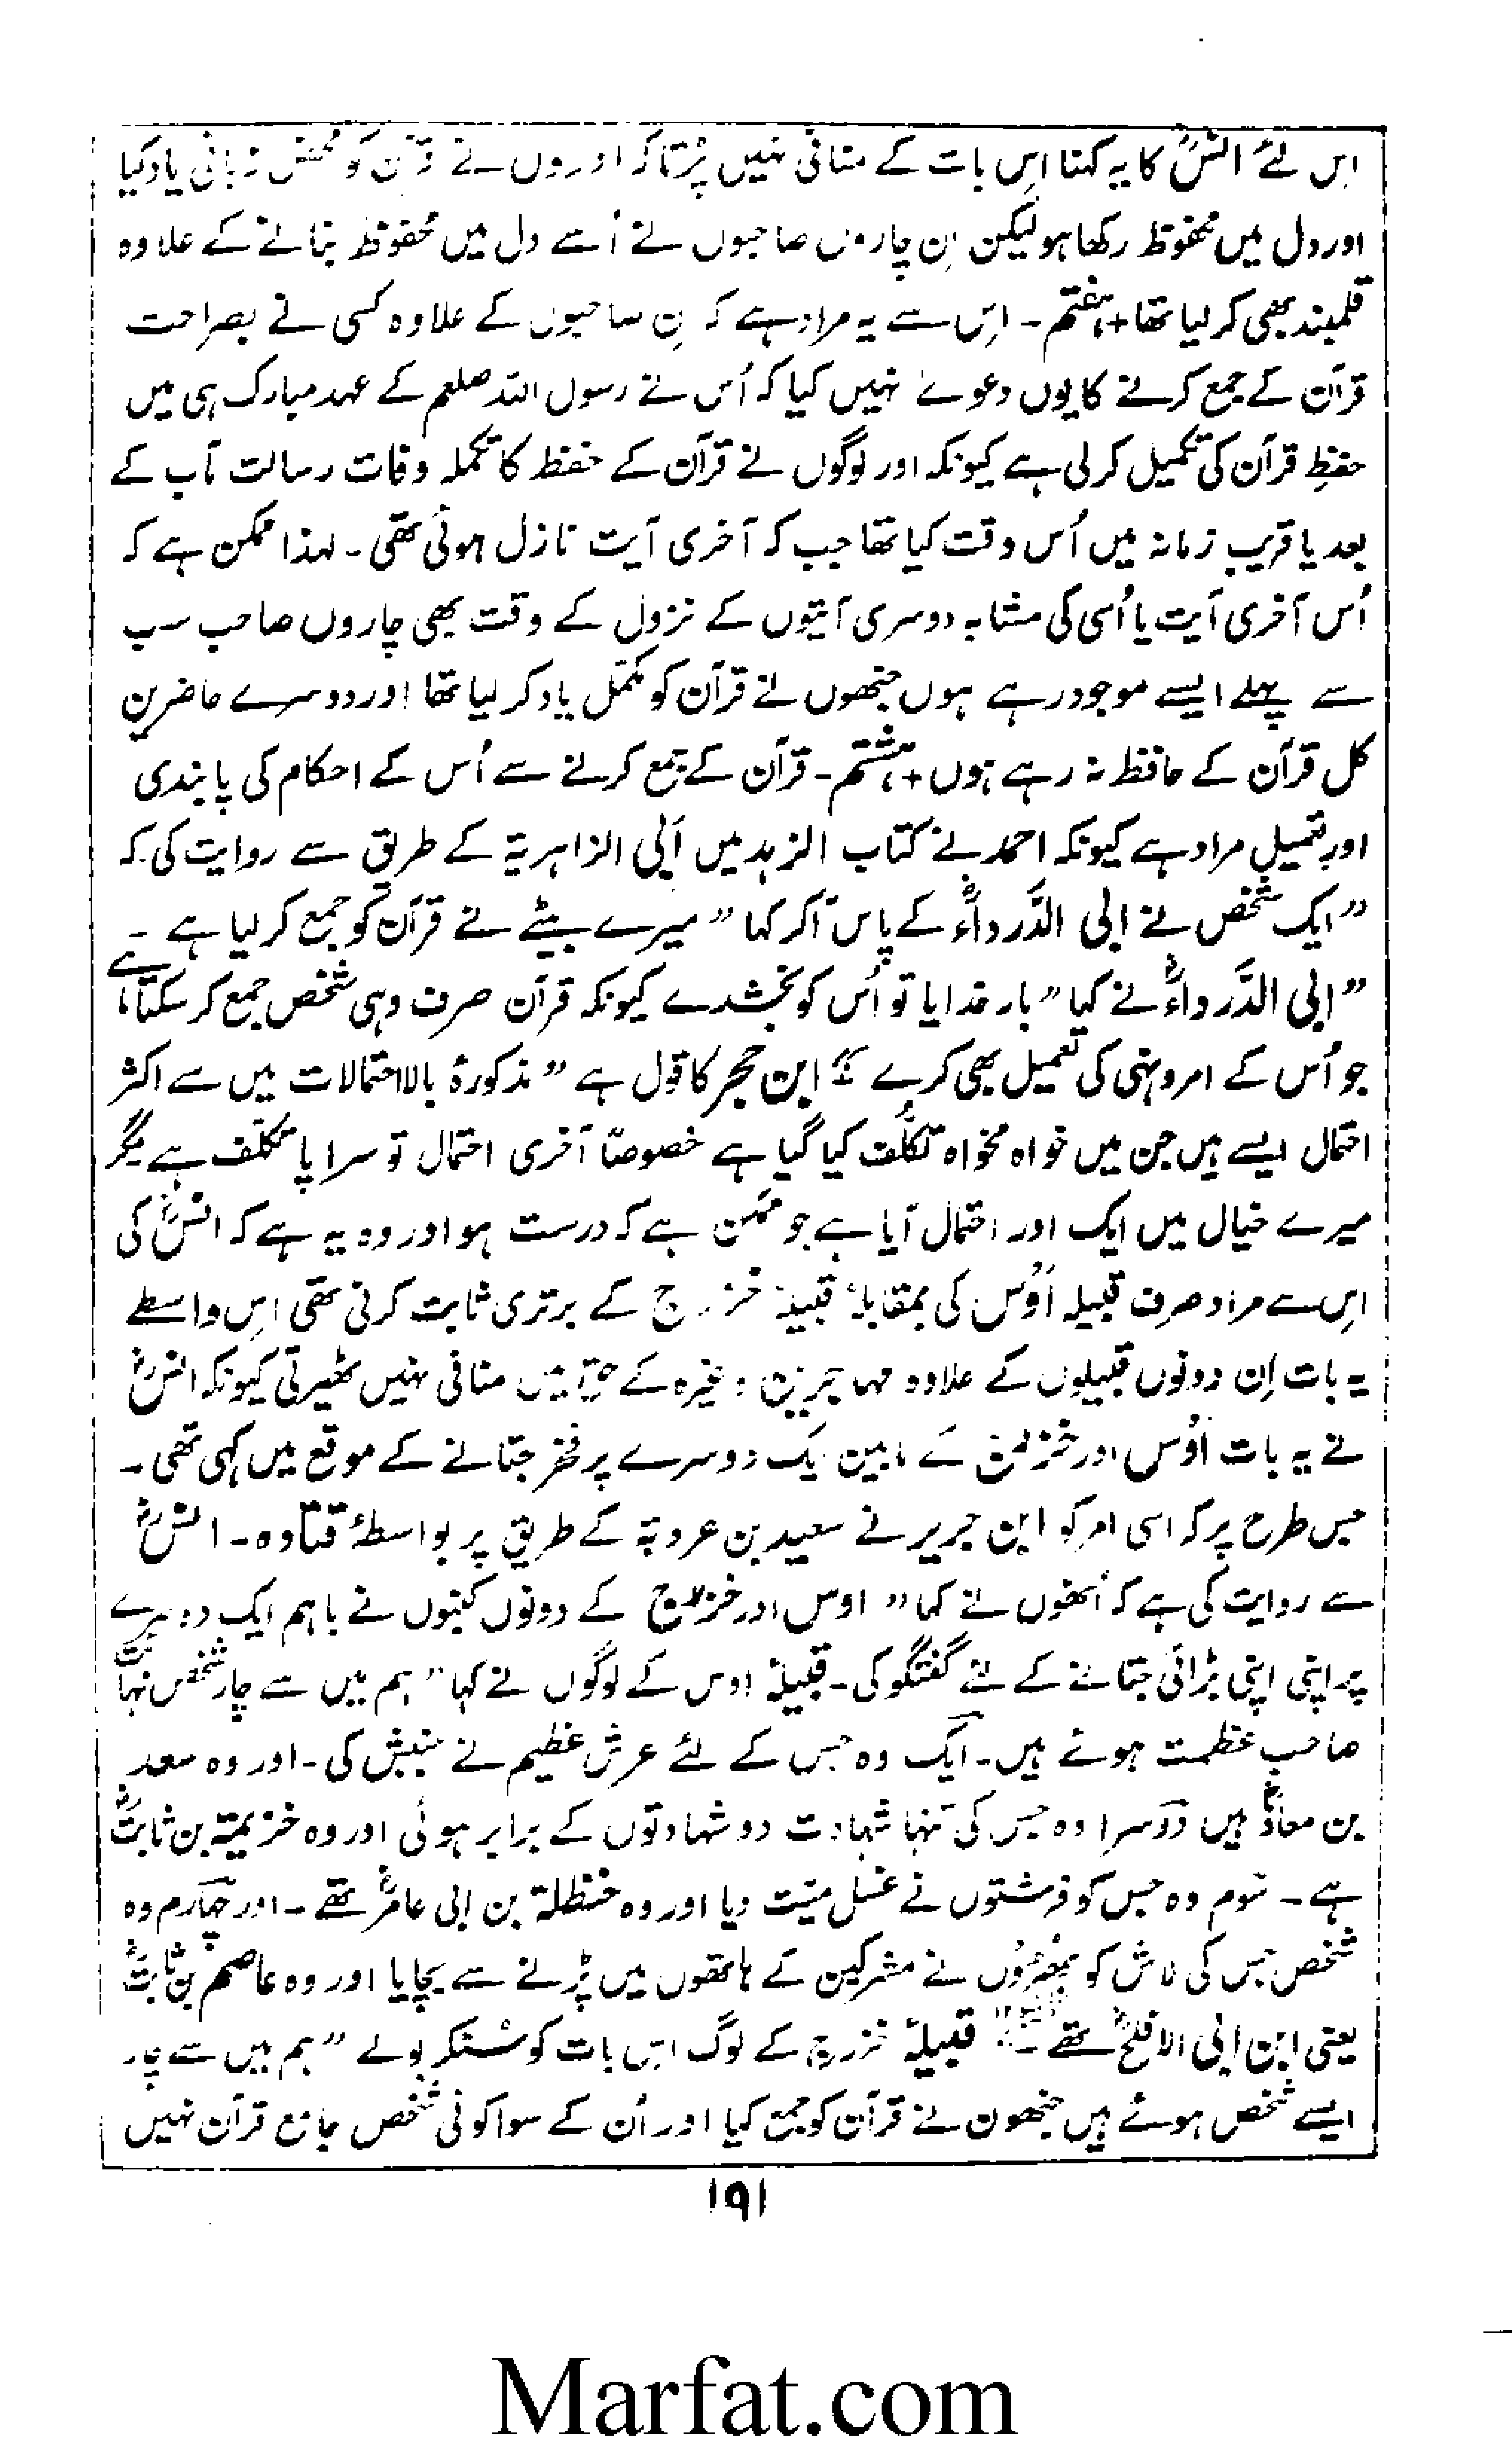 اس لئے انسؓ کا یہ کہنا اِس بات کے منافی نہیں پڑتا کہ اوروں نے قرآن کو محض زبانی یاد کیا
اور دل میں محفوظ رکھا ہو لیکن اِن چاروں صاحبوں نے اُسے دل میں محفوظ بنانے کے علاوہ
قلمبند بھی کر لیا تھا + ہفتم - اِس سے یہ مراد ہے کہ اِن صاحبوں کے علاوہ کسی نے بصراحت
قرآن کے جمع کرنے کا یوں دعوےٰ نہیں کیا کہ اُس نے رسول اللہ صلعم کے عہد مبارک ہی میں
حفظِ قرآن کی تکمیل کر لی ہے کیونکہ اور لوگوں نے قرآن کے حفظ کا تکملہ وفات رسالت مآب کے
بعد یا قریب زمانہ میں اُس وقت کیا تھا جب کہ آخری آیت نازل ہوئی تھی - لہذا ممکن ہے کہ
اُس آخری آیت یا اُسی کی مشابہ دوسری آیتوں کے نزول کے وقت بھی چاروں صاحب سب
سے پہلے ایسے موجود رہے ہوں جنھوں نے قرآن کو مکمّل یاد کر لیا تھا اور دوسرے حاضرین
کل قرآن کے حافظ نہ رہے ہوں + ہشتم - قرآن کے جمع کرنے سے اُس کے احکام کی پابندی
اور تعمیل مراد ہے کیونکہ احمد نے کتاب الزہد میں اَبی الزاہریۃ کے طریق سے روایت کی کہ
”ایک شخص نے ابی الدَّرداءؓ کے پاس آکر کہا ”میرے بیٹے نے قرآن کو جمع کر لیا ہے -
”ابی الدَّرداءؓ نے کہا ”بار خدایا تو اُس کو بخشدے کیونکہ قرآن صرف وہی شخص جمع کر سکتا ہے
جو اُس کے امر و نہی کی تعمیل بھی کرے“ ابن حجر کا قول ہے ”مذکورۂ بالا احتمالات میں سے اکثر
احتمال ایسے ہیں جن میں خواہ مخواہ تکلُّف کیا گیا ہے خصوصًا آخری احتمال تو سراپا تکلّف ہے مگر
میرے خیال میں ایک اور احتمال آیا ہے جو ممکن ہے کہ درست ہو اور وہ یہ ہے کہ انسؓ کی
اِس سے مراد صرف قبیلہ اَوْس کی بمقابلۂ قبیلۂ خزرج کے برتری ثابت کرنی تھی اِس واسطے
یہ بات اِن دونوں قبیلوں کے علاوہ مہاجرین وغیرہ کے حق میں منافی نہیں ٹھیرتی کیونکہ انسؓ
نے یہ بات اَوْس اور خزرج کے مابین ایک دوسرے پر فخر جتانے کے موقع میں کہی تھی -
جس طرح پر کہ اسی امر کو ابن جریر نے سعید بن عروبۃ کے طریق پر بواسطۂ قتادہ - انسؓ
سے روایت کی ہے کہ اُنھوں نے کہا ”اوس اور خزرج کے دونوں کنبوں نے باہم ایک دوسرے
پر اپنی اپنی بڑائی جتانے کے لئے گفتگو کی - قبیلۂ اوس کے لوگوں نے کہا ”ہم میں سے چار شخص نہایت
صاحب عظمت ہوئے ہیں - ایک وہ جس کے لئے عرش عظیم نے جنبش کی - اور وہ سعد
بن معاذؓ ہیں دوسرا وہ جس کی تنہا شہادت دو شہادتوں کے برابر ہوئی اور وہ خزیمۃ بن ثابتؓ
ہے - سوم وہ جس کو فرشتوں نے غسل میّت دیا اور وہ حنظلۃ بن ابی عامرؓ تھے - اور چہارم وہ
شخص جس کی لاش کو بھڑوں نے مشرکین کے ہاتھوں میں پڑنے سے بچایا اور وہ عاصم بن ثابتؓ
یعنی ابن ابی الافلحؓ تھے قبیلۂ خزرج کے لوگ اس بات کو سُنکر بولے ”ہم میں سے چار
ایسے شخص ہوئے ہیں جنھون نے قرآن کو جمع کیا اور اُن کے سوا کوئی شخص جامع قرآن نہیں
۱۹۱
Marfat.com